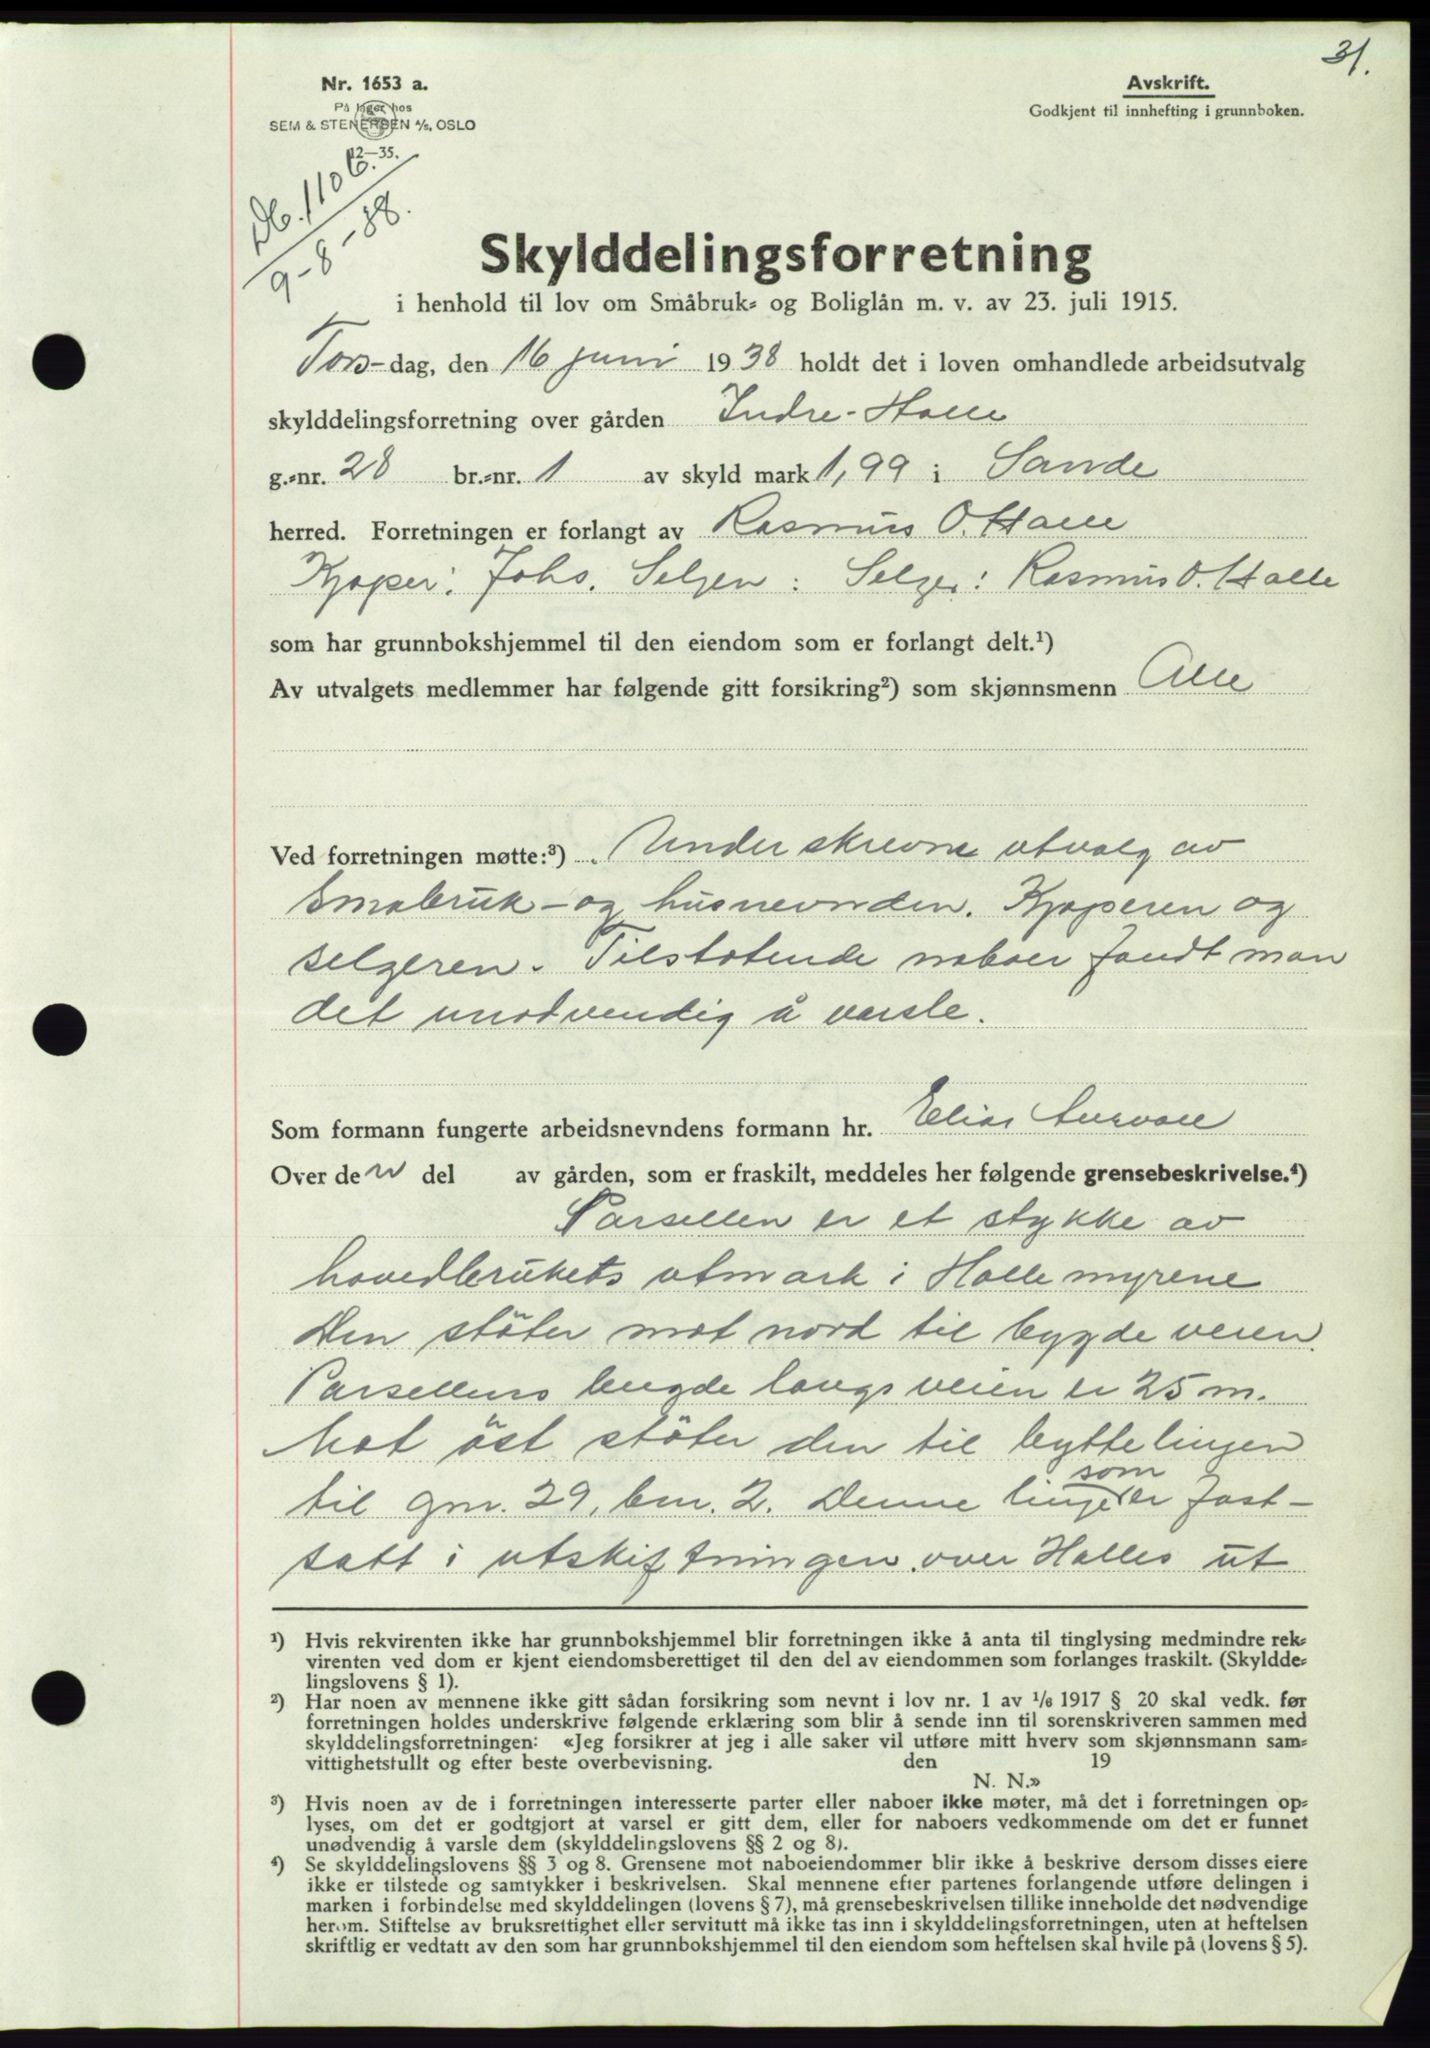 31.
Nr. 1653 a.
På lager hos
SEM & STENERSEN A/S, OSLO
12—35.
Avskrift.
Godkjent til innhefting i grunnboken.
Db. 1106.
9-8-38.
Skylddelingsforretning
i henhold til lov om Småbruk= og Boliglån m. v. av 23. juli 1915.
Tors-dag, den 16 juni 1938 holdt det i loven omhandlede arbeidsutvalg
skylddelingsforretning over gården Indre-Halle
g.=nr. 28 br.=nr. 1 av skyld mark 1,99 i Sande
herred. Forretningen er forlangt av Rasmus O. Halle
Kjøper: Johs. Seljen: Selger: Rasmus O. Halle
som har grunnbokshjemmel til den eiendom som er forlangt delt.¹)
Av utvalgets medlemmer har følgende gitt forsikring²) som skjønnsmenn Alle
Ved forretningen møtte:³) Underskrevne utvalg av
Småbruk-og husnevnden. Kjøperen og
selgeren. Tilstøtende naboer fandt man
det unødvendig å varsle.
Som formann fungerte arbeidsnevndens formann hr. Elias Aurvoll
Over den del av gården, som er fraskilt, meddeles her følgende grensebeskrivelse.⁴)
Parsellen er et stykke av
hovedbrukets utmark i Hallemyrene
Den stöter mot nord til bygdeveien.
Parsellens lengde langs veien er 25 m.
Mot öst stöter den til byttelinjen
til gnr. 29, bnr. 2. Denne linje som er fast-
satt i utskiftningen over Halles ut
¹) Hvis rekvirenten ikke har grunnbokshjemmel blir forretningen ikke å anta til tinglysing medmindre rek=
virenten ved dom er kjent eiendomsberettiget til den del av eiendommen som forlanges fraskilt. (Skyldde=
lingslovens § 1).
²) Har noen av mennene ikke gitt sådan forsikring som nevnt i lov nr. 1 av 1/6 1917 § 20 skal vedk. før
forretningen holdes underskrive følgende erklæring som blir å sende inn til sorenskriveren sammen med
skylddelingsforretningen: «Jeg forsikrer at jeg i alle saker vil utføre mitt hverv som skjønnsmann sam=
vittighetsfullt og efter beste overbevisning. den 19
N. N.»
³) Hvis noen av de i forretningen interesserte parter eller naboer ikke møter, må det i forretningen op=
lyses, om det er godtgjort at varsel er gitt dem, eller for naboers vedkommende om det er funnet
unødvendig å varsle dem (skylddelingslovens §§ 2 og 8).
⁴) Se skylddelingslovens §§ 3 og 8. Grensene mot naboeiendommer blir ikke å beskrive dersom disses eiere
ikke er tilstede og samtykker i beskrivelsen. Skal mennene efter partenes forlangende utføre delingen i
marken i forbindelse med skylddelingen (lovens § 7), må grensebeskrivelsen tillike inneholde det nødvendige
herom. Stiftelse av bruksrettighet eller servitutt må ikke tas inn i skylddelingsforretningen, uten at heftelsen
skriftlig er vedtatt av den som har grunnbokshjemmel til den eiendom som heftelsen skal hvile på (lovens § 5).